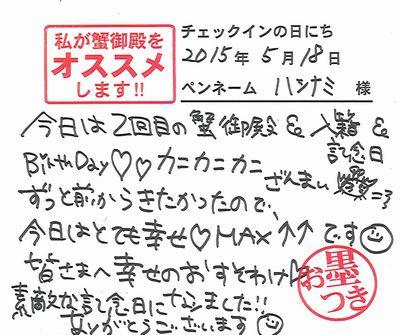 私が蟹御殿を
オススメ
します!!
チェックインの日にち
2015年 5月 18日
ペンネーム ハシナミ 様
今日は2回目の蟹御殿& 入籍&
記念日
Birth Day♡♡カニカニカニ
ざんまい
ずっと前からきたかったので、
今日はとても幸せ♡MAX↑↑です☺
皆さまへ幸せのおすそわけ
素敵な記念日になりました!!
ありがとうございます☺
お墨つき